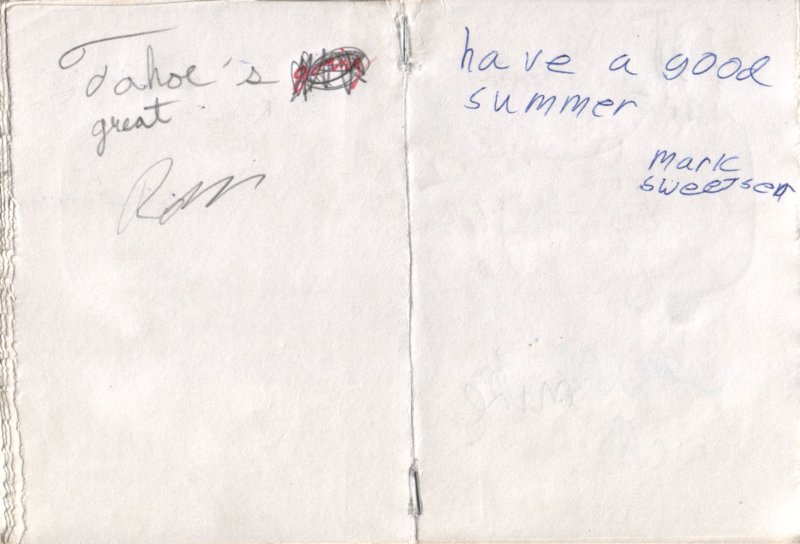 Tahoe's
great
have a good
summer
mark
sweetser